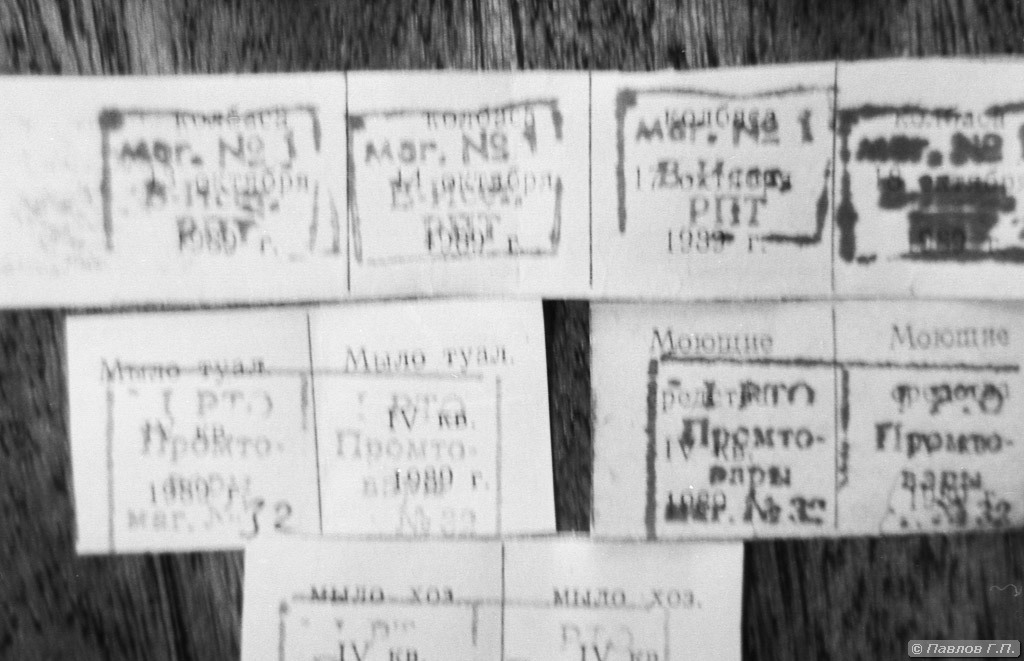 колбаса
маг. № 1
октября
В-Исет.
РПТ
1989 г.
колбаса
маг. № 1
11 октября
В-Исет.
РПТ
1989 г.
колбаса
маг. № 1
В-Исет.
РПТ
1989 г.
колбаса
маг. № 1
Мыло туал.
( РТО
IV кв.
Промто-
вары
1989 г.
маг. № 32
Мыло туал.
РТО
IV кв.
Промто-
вары
1989 г.
№ 32
Моющие
РТО
IV кв.
Промто-
вары
1989
маг. № 32
Моющие
средства
Промто-
вары
№ 32
мыло хоз.
РТ
IV кв.
мыло хоз.
РТО
IV кв.
© Павлов Г.П.